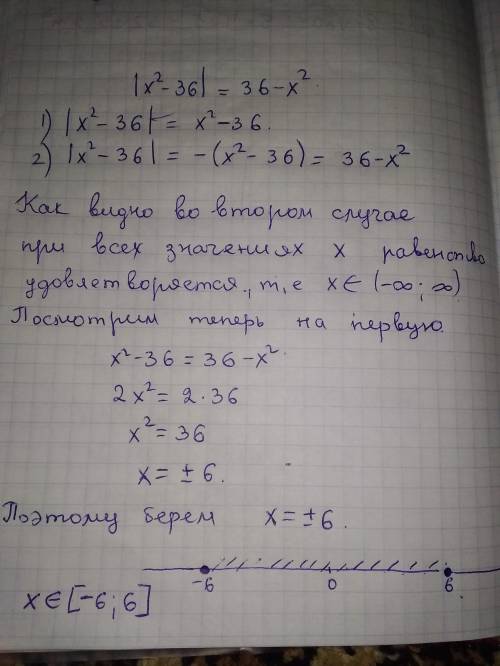 |x²-36| = 36-x²
1) |x²-36| = x²-36.
2) |x²-36| = -(x²-36) = 36-x²
Как видно во втором случае
при всех значениях x равенство
удовлетворяется., т, е x∈(-∞; ∞)
Посмотрим теперь на первую.
x²-36 = 36-x².
2x² = 2·36
x² = 36
x = ±6.
Поэтому берем x = ±6.
-6 0 6
x∈[-6; 6]